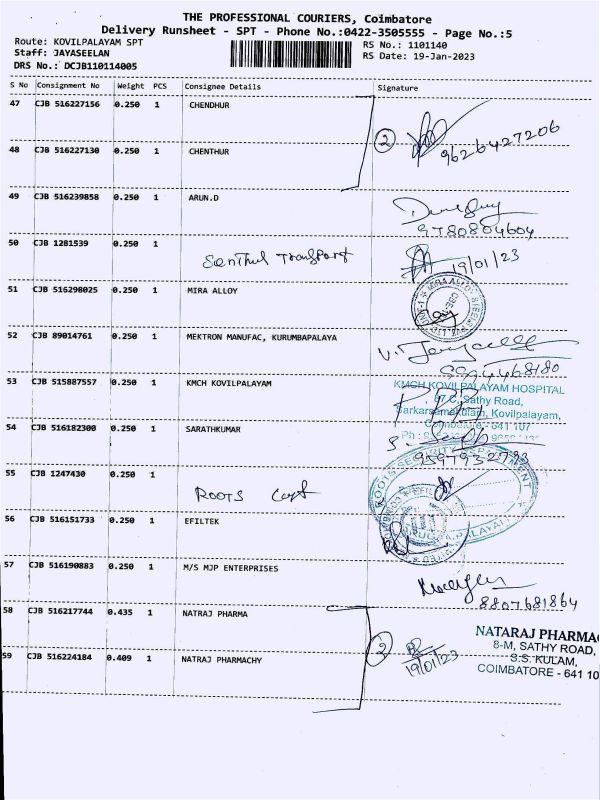 THE PROFESSIONAL COURIERS, Coimbatore
Delivery Runsheet - SPT - Phone No.:0422-3505555 - Page No.:5
Route: KOVILPALAYAM SPT
RS No.: 1101140
Staff: JAYASEELAN
RS Date: 19-Jan-2023
DRS No.: DCJB110114005
S No Consignment No Weight PCS Consignee Details Signature
47 CJB 516227156 0.250 1 CHENDHUR
2 9626427206
48 CJB 516227130 0.250 1 CHENTHUR
49 CJB 516239858 0.250 1 ARUN.D
9780804604
50 CJB 1281539 0.250 1
Senthul Transport 19/01/23
51 CJB 516298025 0.250 1 MIRA ALLOY
MIRA ALLOY
52 CJB 89014761 0.250 1 MEKTRON MANUFAC, KURUMBAPALAYA
53 CJB 515887557 0.250 1 KMCH KOVILPALAYAM
KMCH KOVILPALAYAM HOSPITAL
Sathy Road,
Kovilpalayam,
Coimbatore - 641 107
54 CJB 516182300 0.250 1 SARATHKUMAR
55 CJB 1247430 0.250 1
ROOTS Cast
ROOTS SECURITY DEPARTMENT
56 CJB 516151733 0.250 1 EFILTEK
EFILTEK
57 CJB 516190883 0.250 1 M/S MJP ENTERPRISES
8807681864
58 CJB 516217744 0.435 1 NATRAJ PHARMA
NATARAJ PHARMAC
8-M, SATHY ROAD,
S.S. KULAM,
COIMBATORE - 641 10
2 19/01/23
59 CJB 516224184 0.409 1 NATRAJ PHARMACHY